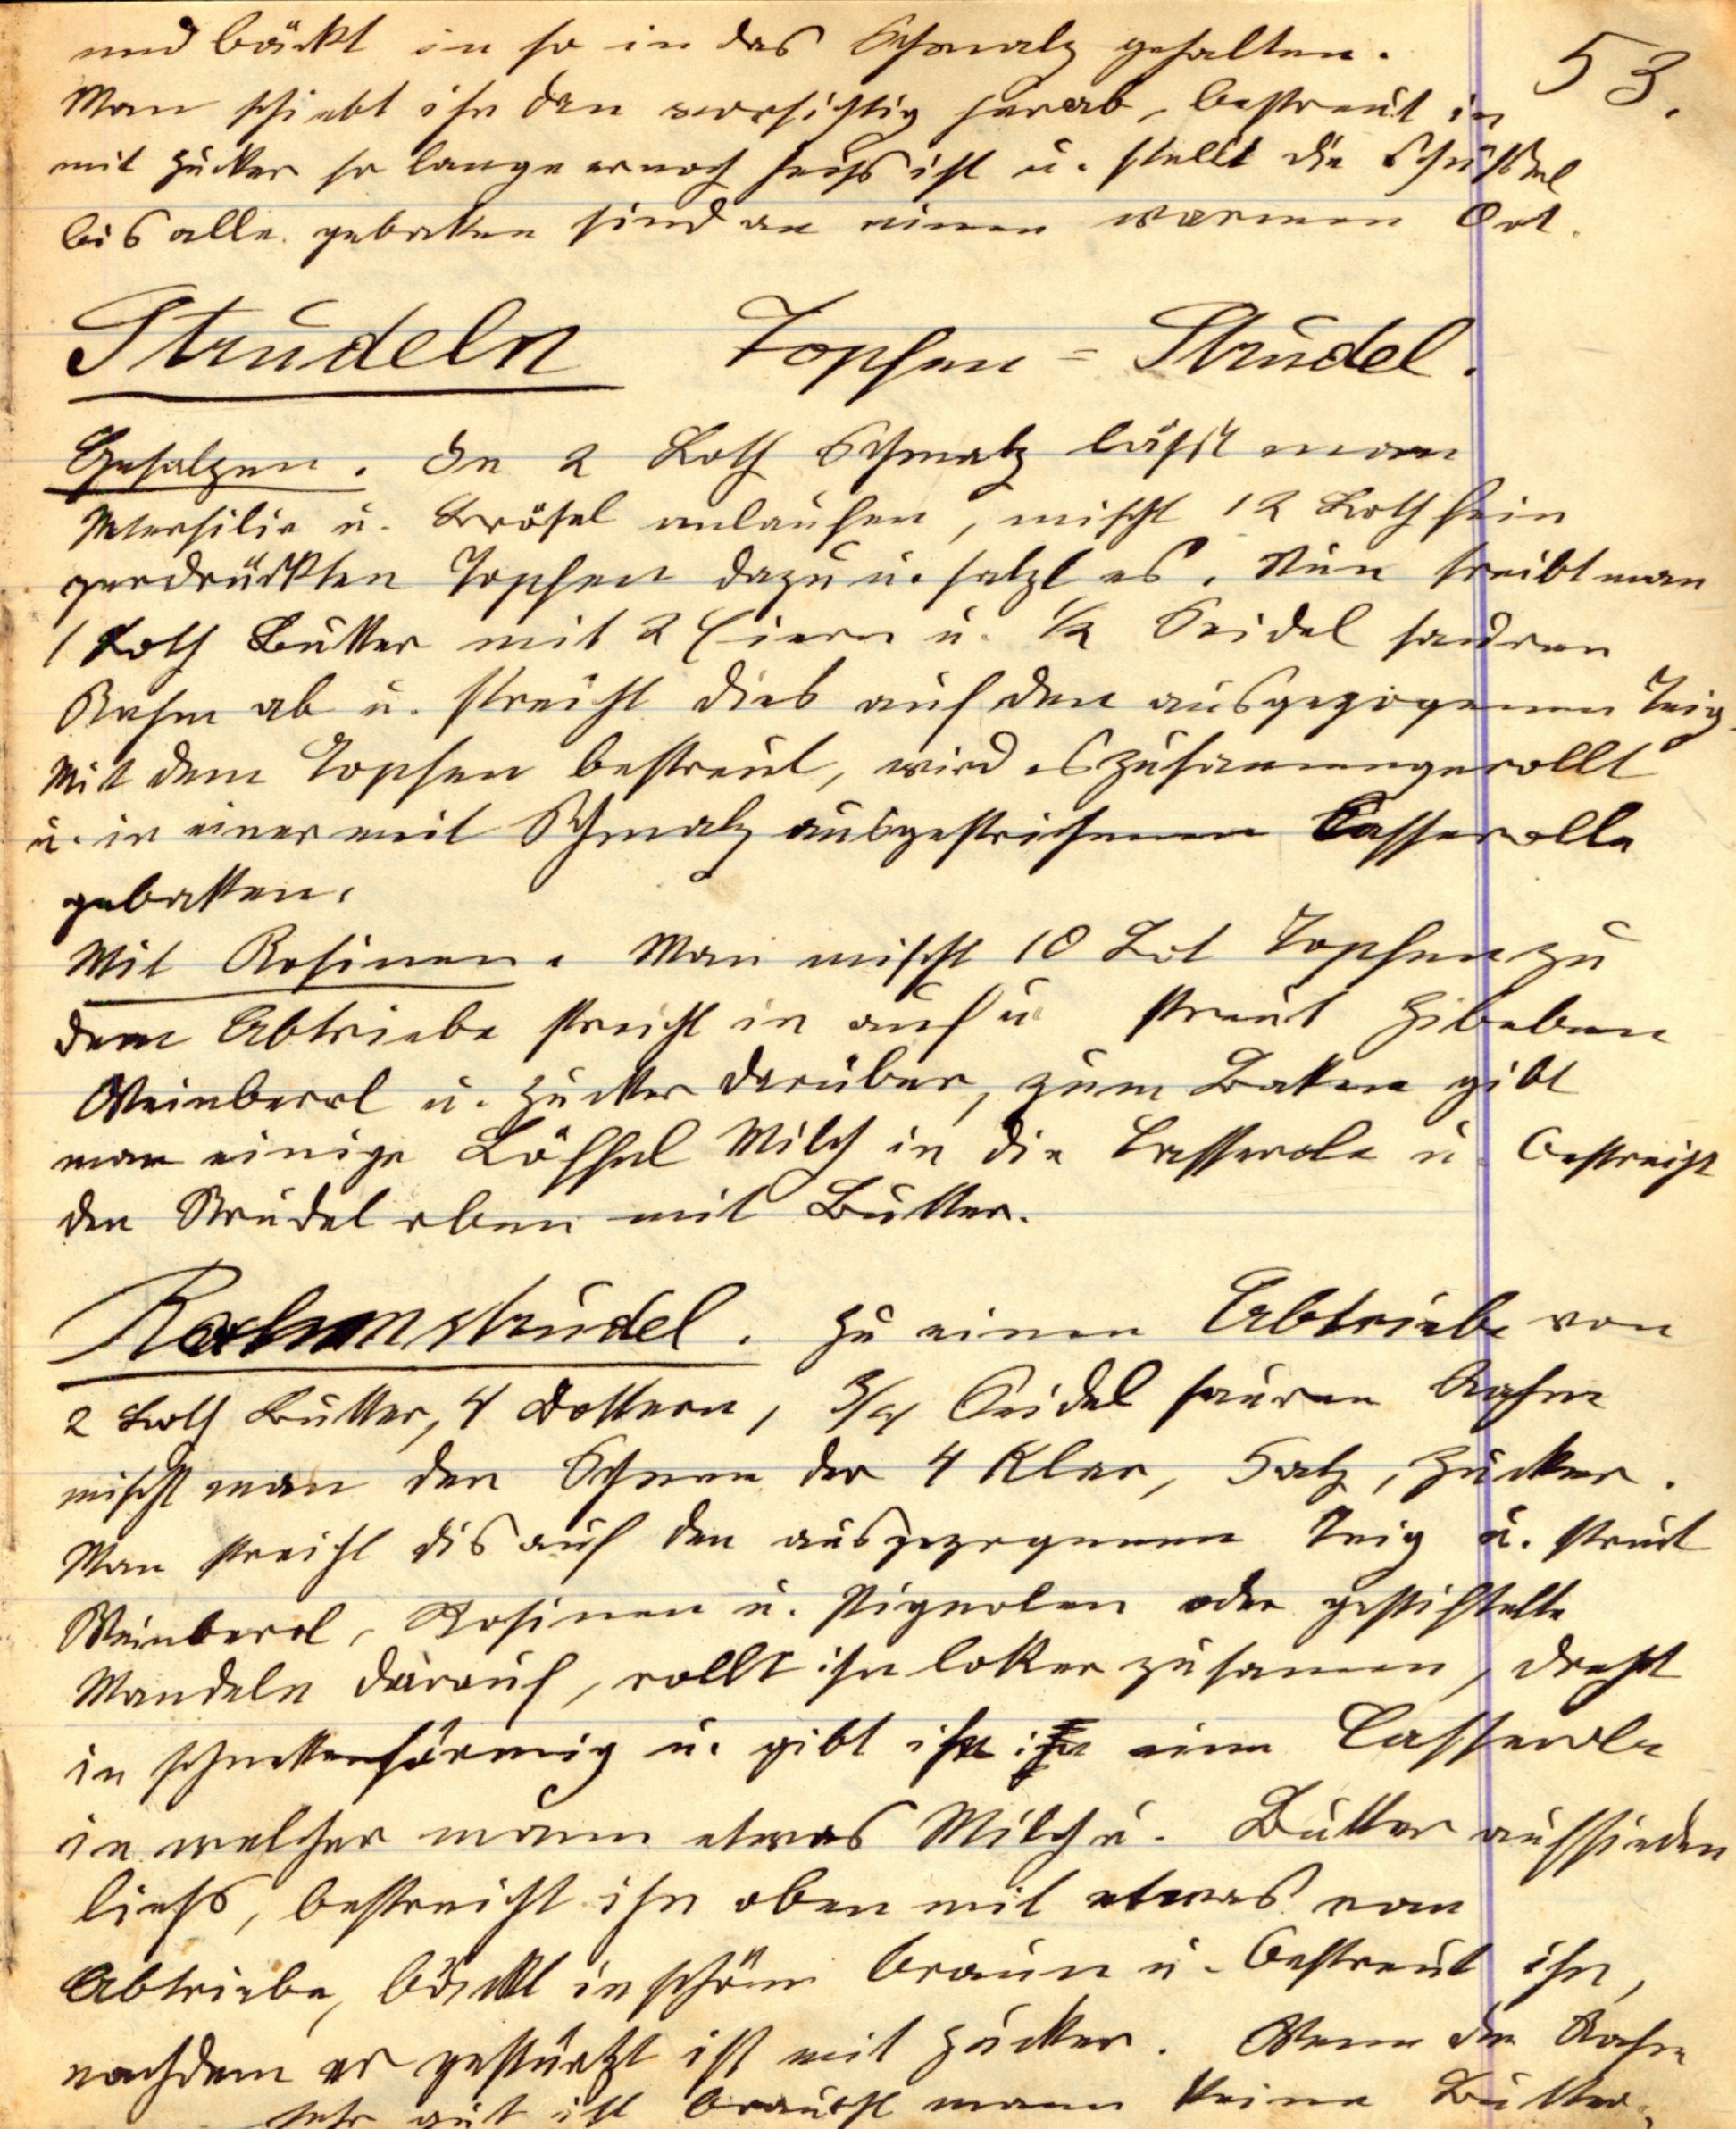 53.
und bäckt in so in das Schmalz gehalten.
Man schiebt ihn dan vorsichtig herab, bestreut in
mit Zucker so lange er noch heiß ist u. stellt die Schüssel
bis alle gebaken sind an einen warmen Ort.
Strudeln Topfen = Strudel.
Gesalzen. In 2 Loth Schmalz läßt man
Petersilie u. Brösel anlaufen, mischt 12 Loth fein
zerdrückten Topfen dazu u. salzt es. Nun treibt man
1 Loth Butter mit 2 Eiern u. 1/2 Seidel sauren
Rahm ab u. streicht dies auf den ausgezogenen Teig.
Mit dem Topfen bestreut, wird es zusammengerollt
u. in einer mit Schmalz ausgestrichenen Casserolle
gebakken.
Mit Rosinen. Man mischt 10 Lot Topfen zu
dem Abtriebe streicht in auf u streut Zibeben
Weinberl u. Zucker darüber, zum Baken gibt
man einige Löffel Milch in die Casserole u. bestreicht
den Strudel oben mit Butter.
Rahmstrudel. Zu einen Abtriebe von
2 Loth Butter, 4 Dottern, 3/4 Seidel sauren Rahm
mischt man den Schnee der 4 Klar, Salz, Zucker.
Man streicht dis auf den ausgezogenen Teig u. streut
Weinberl, Rosinen u. Pignolen oder gestiftelte
Mandeln darauf, rollt ihn loker zusamen, dreht
in schneckenförmig u. gibt ihn in eine Casserole
in welcher mann etwas Milch u. Butter aufsieden
ließ, bestreicht ihn oben mit etwas vom
Abtriebe, bäckt in schön braun u. bestreut ihn,
nachdem er gestürtzt ist mit Zucker. Wenn der Rahm
sehr gut ist braucht mann keine Butter.